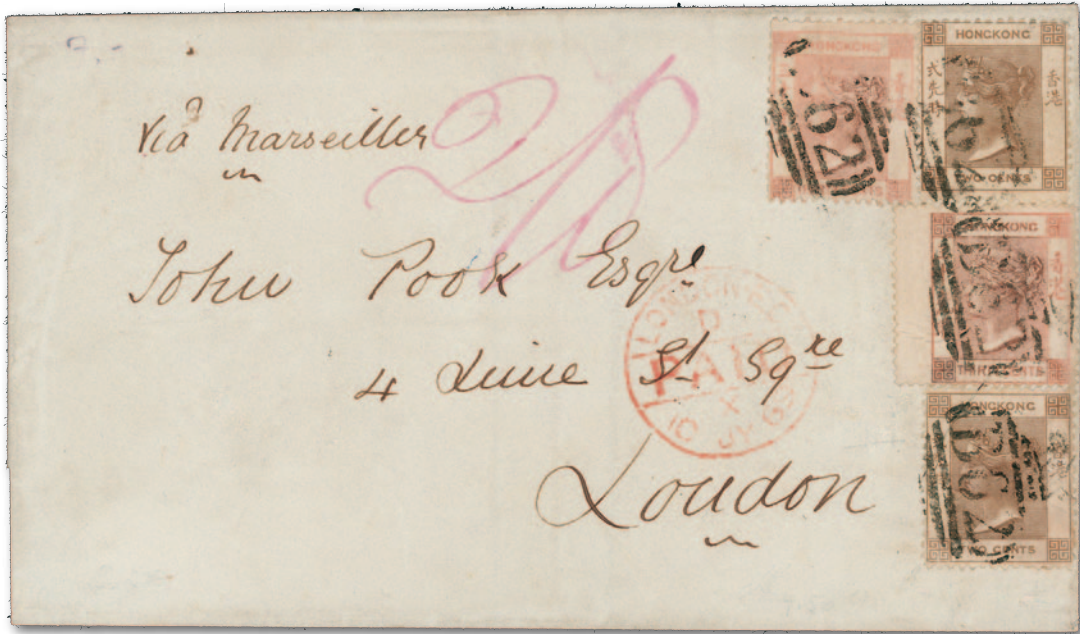 via Marseilles
John Pook Esqre
4 Lime St Sqre
London
LONDON
PAID
10 JY 69
HONGKONG
CENTS
B62
HONGKONG
香港
TWO CENTS
B62
HONGKONG
THIRTY CENTS
HONGKONG
TWO CENTS
B62